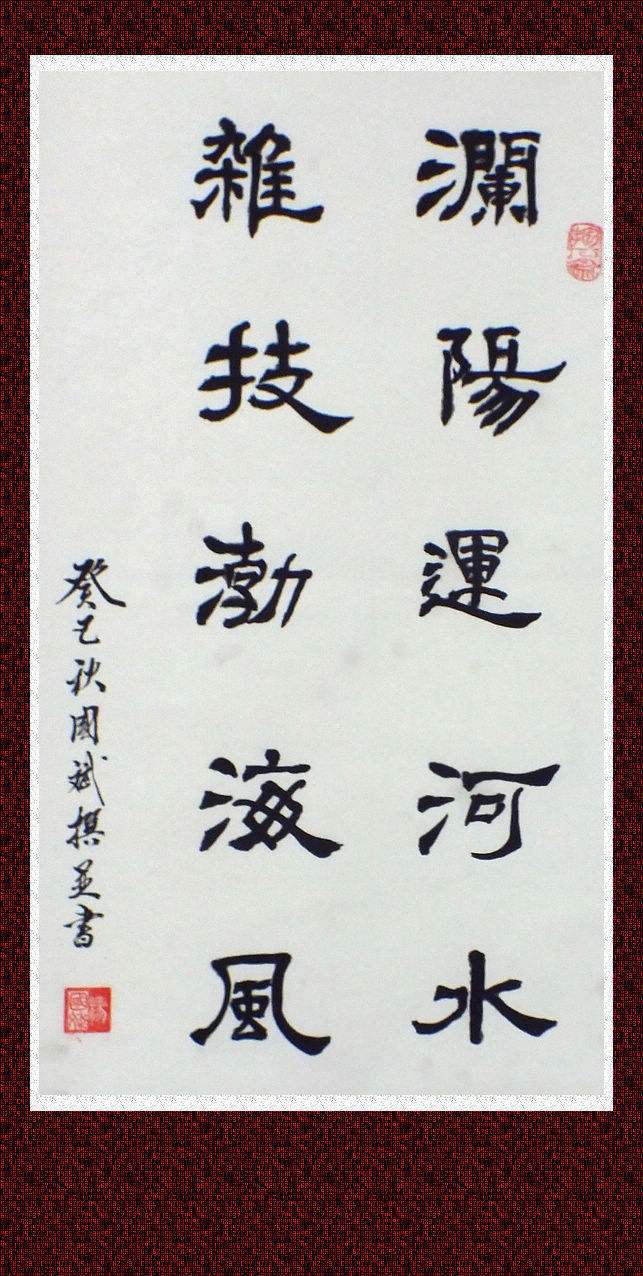 瀾陽運河水
雜技渤海風
癸巳秋國斌撰並書